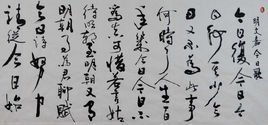 明文嘉今日歌
今日復今日今
日何其少今
日又不為此事
何時了人生百
年幾今日今日不
為真可惜若言姑
待明朝至明朝又有
明朝事為君聊賦
今日詩努力
請從今日始